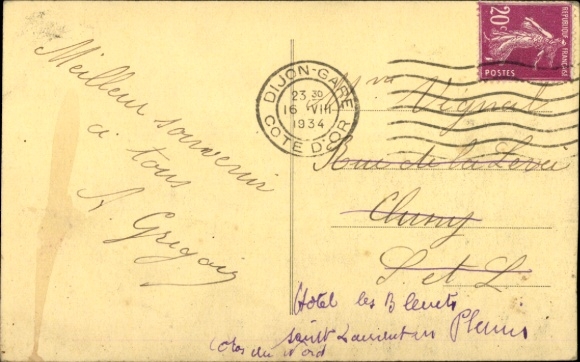 Meilleur souvenir
à tous
A. Grigoix
20c
REPUBLIQUE FRANÇAISE
POSTES
DIJON-GARE
23 30
16 VIII
1934
COTE D'OR
Vignal
Rue de la Levée
Cluny
S. et L.
Hôtel les Bleuets
Saint Laurent en Plenui
Côtes du Nord